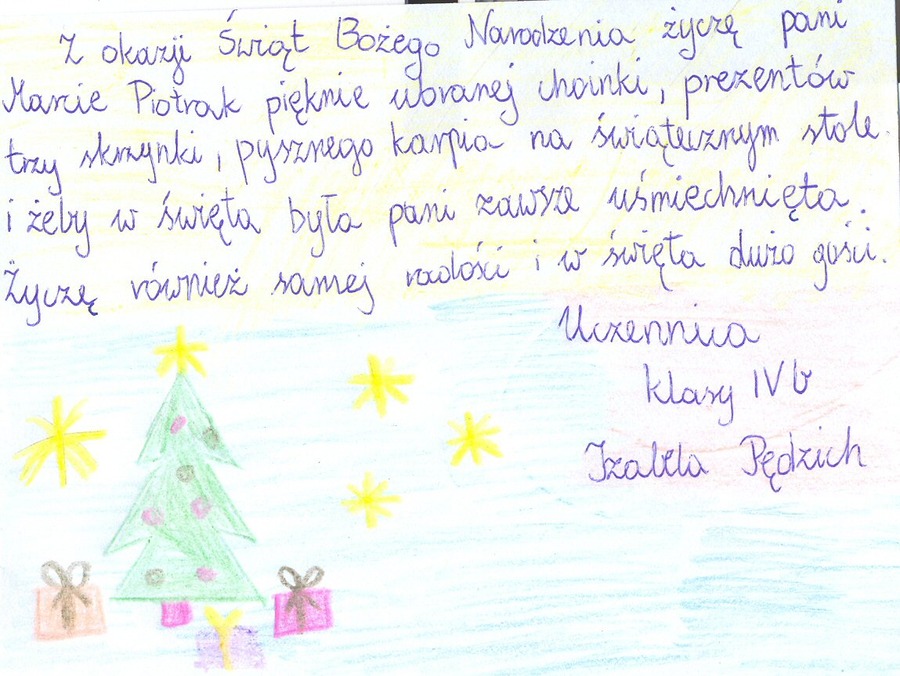 Z okazji Świąt Bożego Narodzenia życzę pani
Marcie Piotrak pięknie ubranej choinki, prezentów
trzy skrzynki, pysznego karpia na świątecznym stole
i żeby w święta była pani zawsze uśmiechnięta.
Życzę również samej radości i w święta dużo gości.
Uczennica
klasy IV b
Izabela Pędzich